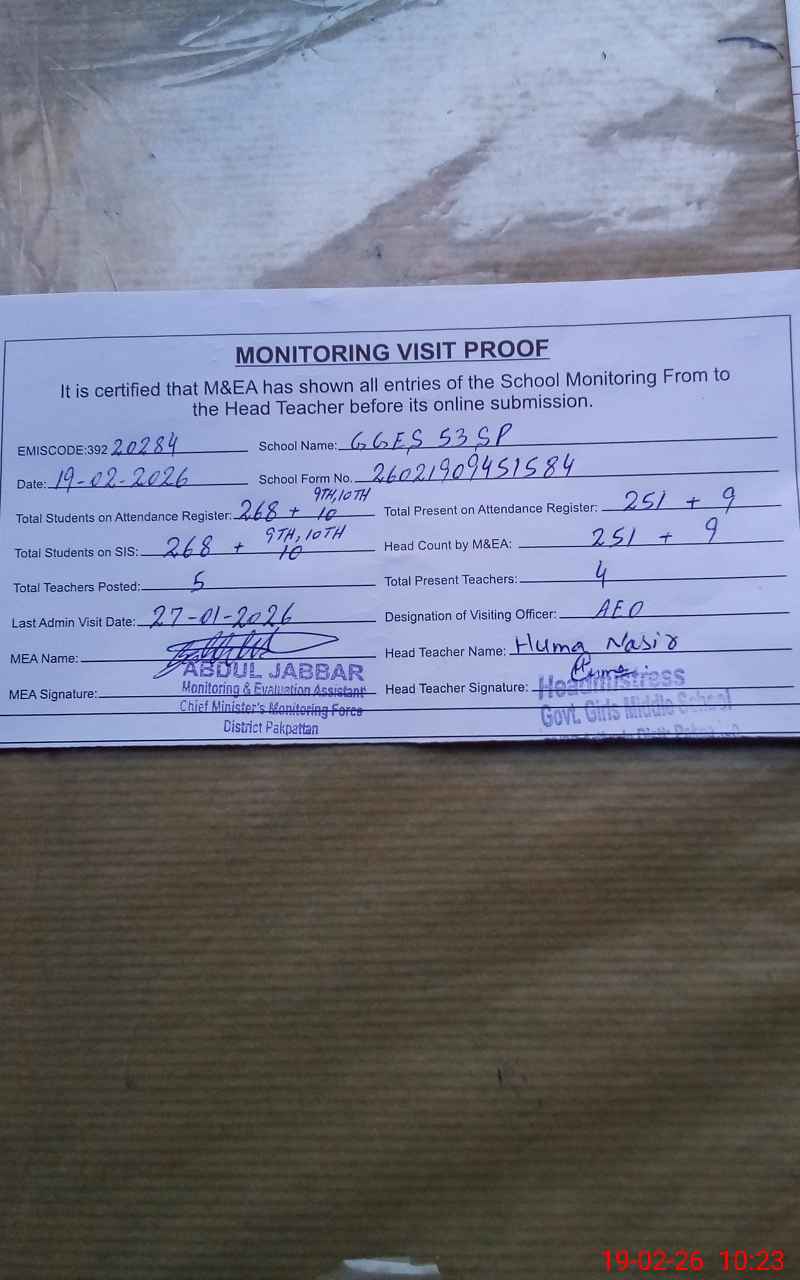 MONITORING VISIT PROOF
It is certified that M&EA has shown all entries of the School Monitoring From to
the Head Teacher before its online submission.
EMISCODE:392 20284 School Name: GGES 53 SP
Date: 19-02-2026 School Form No. 26021909451584
Total Students on Attendance Register: 268 + 9TH,10TH 10 Total Present on Attendance Register: 251 + 9
Total Students on SIS: 268 + 9TH,10TH 10 Head Count by M&EA: 251 + 9
Total Teachers Posted: 5 Total Present Teachers: 4
Last Admin Visit Date: 27-01-2026 Designation of Visiting Officer: AEO
MEA Name: Head Teacher Name: Huma Nasir
ABDUL JABBAR
MEA Signature: Monitoring & Evaluation Assistant Head Teacher Signature: Huma Headmistress
Chief Minister's Monitoring Force Govt. Girls Middle School
District Pakpattan
19-02-26 10:23